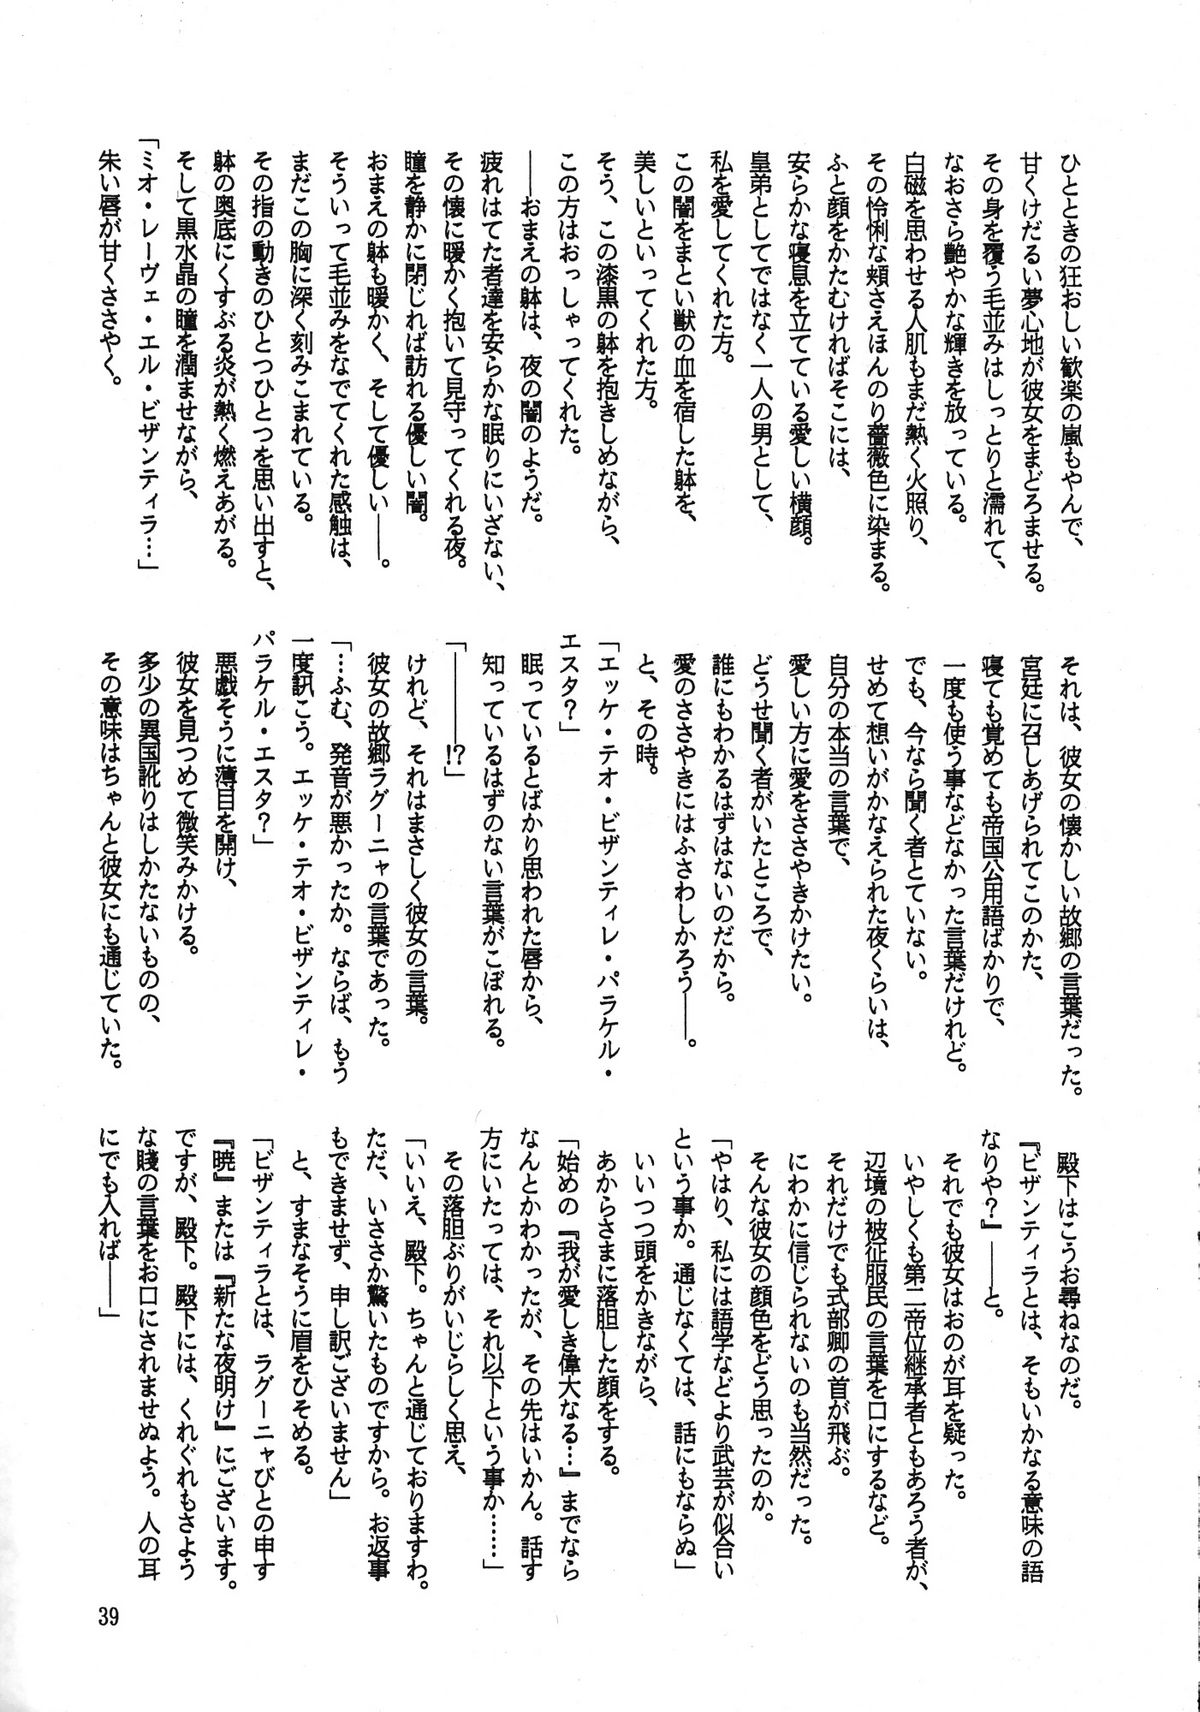 ひとときの狂おしい歓楽の嵐もやんで、
甘くけだるい夢心地が彼女をまどろませる。
その身を覆う毛並みはしっとりと濡れて、
なおさら艶やかな輝きを放っている。
白磁を思わせる人肌もまだ熱く火照り、
その怜悧な頬さえほんのり薔薇色に染まる。
ふと顔をかたむければそこには、
安らかな寝息を立てている愛しい横顔。
皇弟としてではなく一人の男として、
私を愛してくれた方。
この闇をまとい獣の血を宿した躰を、
美しいといってくれた方。
そう、この漆黒の躰を抱きしめながら、
この方はおっしゃってくれた。
――おまえの躰は、夜の闇のようだ。
疲れはてた者達を安らかな眠りにいざない、
その懐に暖かく抱いて見守ってくれる夜。
瞳を静かに閉じれば訪れる優しい闇。
おまえの躰も暖かく、そして優しい――。
そういって毛並みをなでてくれた感触は、
まだこの胸に深く刻みこまれている。
その指の動きのひとつひとつを思い出すと、
躰の奥底にくすぶる炎が熱く燃えあがる。
そして黒水晶の瞳を潤ませながら、
「ミオ・レーヴェ・エル・ビザンティラ…」
朱い唇が甘くささやく。
それは、彼女の懐かしい故郷の言葉だった。
宮廷に召しあげられてこのかた、
寝ても覚めても帝国公用語ばかりで、
一度も使う事などなかった言葉だけれど。
でも、今なら聞く者とていない。
せめて想いがかなえられた夜くらいは、
自分の本当の言葉で、
愛しい方に愛をささやきかけたい。
どうせ聞く者がいたところで、
誰にもわかるはずはないのだから。
愛のささやきにはふさわしかろう――。
と、その時。
「エッケ・テオ・ビザンティレ・パラケル・
エスタ？」
眠っているとばかり思われた唇から、
知っているはずのない言葉がこぼれる。
「―――!?」
けれど、それはまさしく彼女の言葉。
彼女の故郷ラグーニャの言葉であった。
「…ふむ、発音が悪かったか。ならば、もう
一度訊こう。エッケ・テオ・ビザンティレ・
パラケル・エスタ？」
悪戯そうに薄目を開け、
彼女を見つめて微笑みかける。
多少の異国訛りはしかたないものの、
その意味はちゃんと彼女にも通じていた。
殿下はこうお尋ねなのだ。
『ビザンティラとは、そもいかなる意味の語
なりや？』――と。
それでも彼女はおのが耳を疑った。
いやしくも第二帝位継承者ともあろう者が、
辺境の被征服民の言葉を口にするなど。
それだけでも式部卿の首が飛ぶ。
にわかに信じられないのも当然だった。
そんな彼女の顔色をどう思ったのか。
「やはり、私には語学などより武芸が似合い
という事か。通じなくては、話にもならぬ」
いいつつ頭をかきながら、
あからさまに落胆した顔をする。
「始めの『我が愛しき偉大なる…』までなら
なんとかわかったが、その先はいかん。話す
方にいたっては、それ以下という事か……」
その落胆ぶりがいじらしく思え、
「いいえ、殿下。ちゃんと通じておりますわ。
ただ、いささか驚いたものですから。お返事
もできませず、申し訳ございません」
と、すまなそうに眉をひそめる。
「ビザンティラとは、ラグーニャびとの申す
『暁』または『新たな夜明け』にございます。
ですが、殿下。殿下には、くれぐれもさよう
な賤の言葉をお口にされませぬよう。人の耳
にでも入れば――」
39